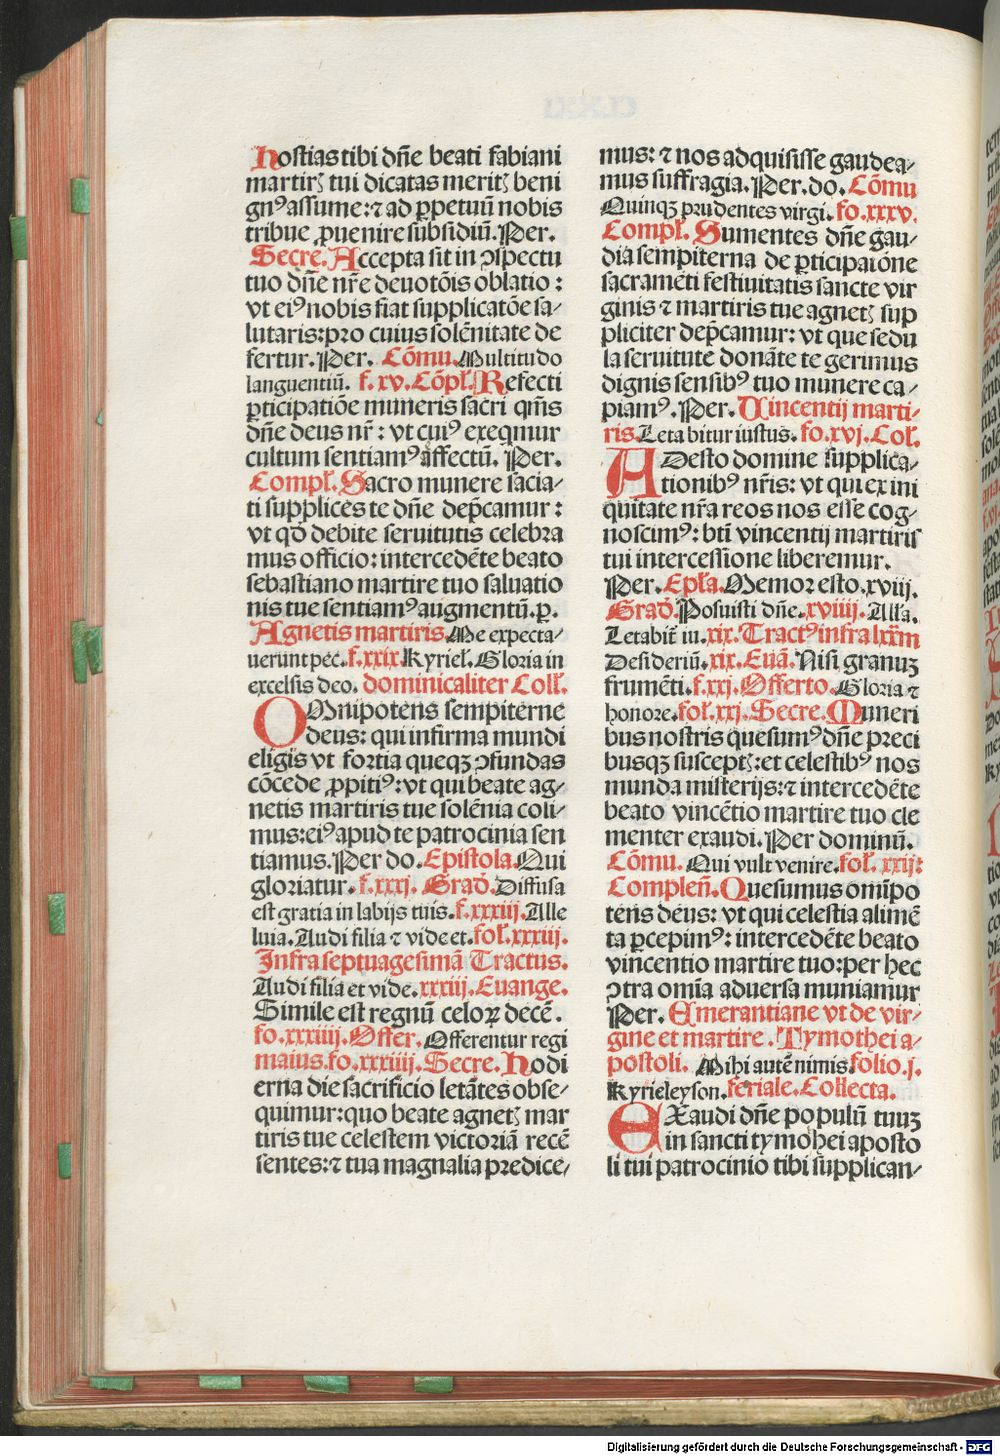 hostias tibi dñe beati fabiani
martirꝫ tui dicatas meritꝫ beni
gnꝰ assume: ⁊ ad ꝑpetuũ nobis
tribue ꝓuenire subsidiũ. Per.
Secre. Accepta sit in ↄspectu
tuo dñe nr̃e deuotõis oblatio :
vt eiꝰ nobis fiat supplicatõe sa⸗
lutaris: pro cuius solẽnitate de
fertur. Per. Cõmu. Multitudo
languentiũ. f. xv. Cõpl̃. Refecti
ꝑticipatiõe muneris sacri qm̃s
dñe deus nr̃ : vt cuiꝰ exeqmur
cultum sentiamꝰ affectũ. Per.
Compl̃. Sacro munere sacia⸗
ti supplices te dñe dep̃camur :
vt qd̃ debite seruitutis celebra
mus officio: intercedẽte beato
sebastiano martire tuo saluatio
nis tue sentiamꝰ augmentũ. ꝑ.
Agnetis martiris. Me expecta⸗
uerunt pec̃. f. xxix. Kyriel̃. Gloria in
excelsis deo. dominicaliter Coll̃.
OMnipotens sempiterne
deus: qui infirma mundi
eligis vt fortia queqꝫ ↄfundas
cõcede ꝓpitiꝰ: vt qui beate ag⸗
netis martiris tue solẽnia coli⸗
mus: eiꝰ apud te patrocinia sen
tiamus. Per do. Epistola. Qui
gloriatur. f. xxxj. Grad̃. Diffusa
est gratia in labijs tuis. f. xxxiij. Alle
luia. Audi filia ⁊ vide et. fol̃. xxxiij.
Infra septuagesimã Tractus.
Audi filia et vide. xxxiij. Euange.
Simile est regnũ celoꝝ decẽ.
fo. xxxiiij. Offer. Offerentur regi
maius. fo. xxxiiij. Secre. Hodi
erna die sacrificio letãtes obse⸗
quimur: quo beate agnetꝫ mar
tiris tue celestem victoriã recẽ
sentes: ⁊ tua magnalia predice⸗
mus: ⁊ nos adquisisse gaudea⸗
mus suffragia. Per. do. Cõmu
Quinqꝫ prudentes virgi. fo. xxxv.
Compl̃. Sumentes dñe gau⸗
dia sempiterna de ꝑticipaiõne
sacramẽti festiuitatis sancte vir
ginis ⁊ martiris tue agnetꝫ sup
pliciter dep̃camur: vt que sedu
la seruitute donãte te gerimus
dignis sensibꝰ tuo munere ca⸗
piamꝰ. Per. Uincentij marti⸗
ris. Leta bitur iustus. fo. xvj. Col̃.
ADesto domine supplica⸗
tionibꝰ nr̃is: vt qui ex ini
quitate nr̃a reos nos esse cog⸗
noscimꝰ: bt̃i vincentij martiris
tui intercessione liberemur.
Per. Epl̃a. Memor esto. xviij.
Grad̃. Posuisti dñe. xviiij. All̃a.
Letabit̃ iu. xix. Tractꝰ infra lxxm̃
Desideriũ. xix. Euã. Nisi granuꝫ
frumẽti. f. xxj. Offerto. Gloria ⁊
honore. fol̃. xxj. Secre. Muneri
bus nostris quesumꝰ dñe preci
busqꝫ susceptꝫ: et celestibꝰ nos
munda misterijs: ⁊ intercedẽte
beato vincẽtio martire tuo cle
menter exaudi. Per dominũ.
Cõmu. Qui vult venire. fol̃. xxij:
Compleñ. Quesumus om̃ipo
tens deus: vt qui celestia alimẽ
ta ꝑcepimꝰ: intercedẽte beato
vincentio martire tuo: per hec
ↄtra om̃ia aduersa muniamur
Per. Emerantiane vt de vir⸗
gine et martire. Tymothei a⸗
postoli. Mihi autẽ nimis. folio. j.
Kyrieleyson. feriale. Collecta.
EXaudi dñe populũ tuuꝫ
in sancti tymohei aposto
li tui patrocinio tibi supplican⸗
Digitalisierung gefördert durch die Deutsche Forschungsgemeinschaft - DFG